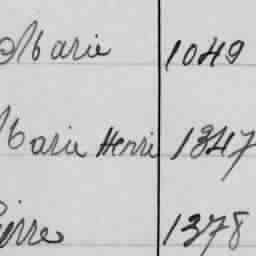 Marie 1049
Marie Henri 1347
Pierre 1378